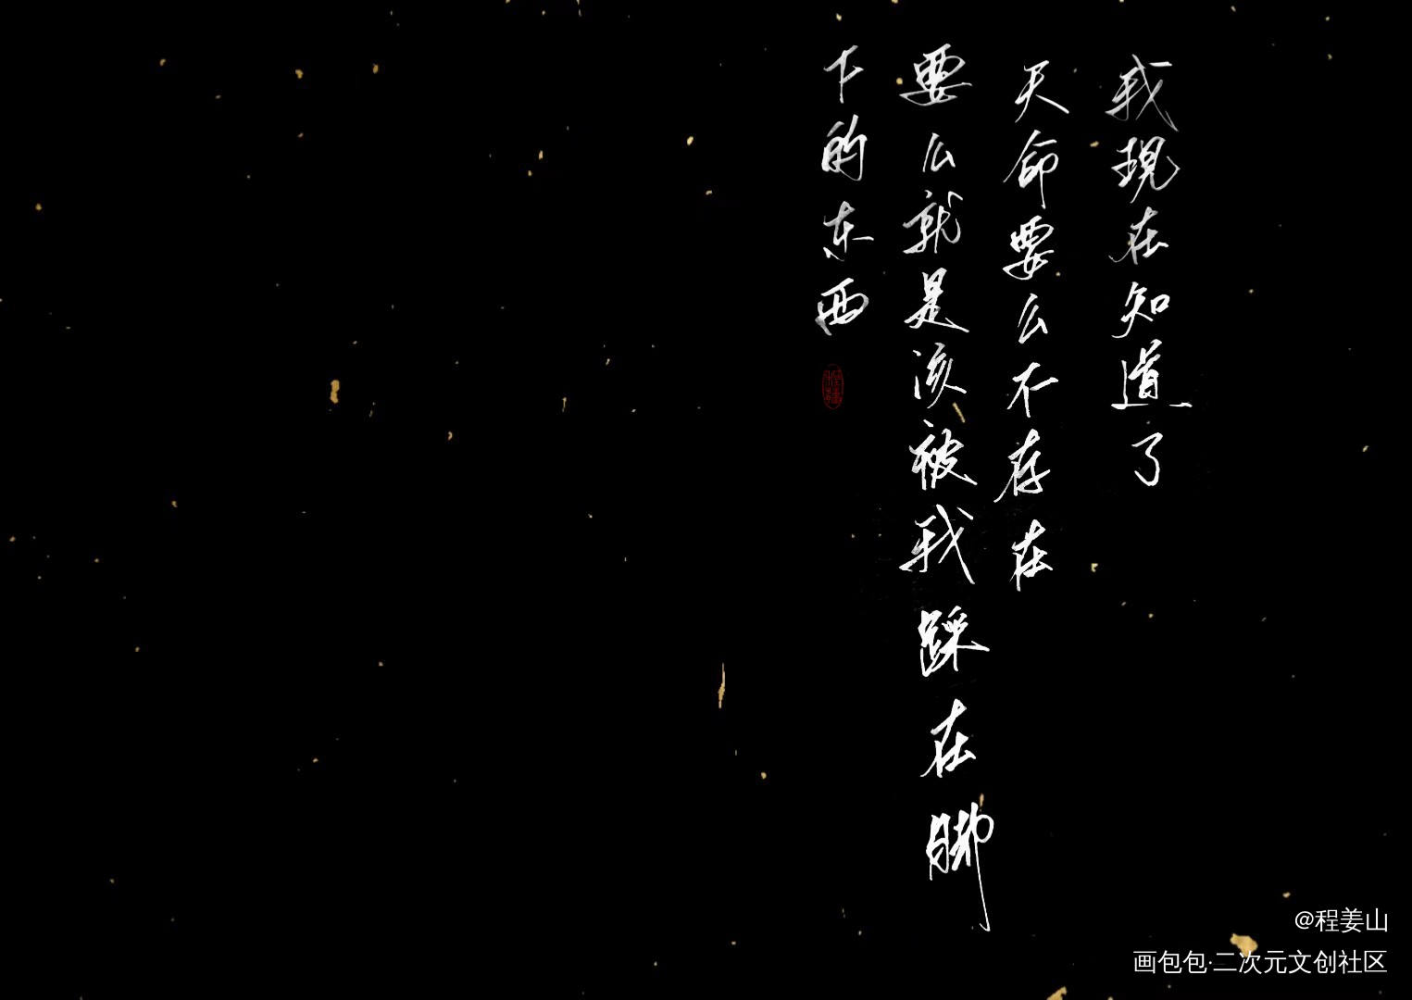 我现在知道了
天命要么不存在
要么就是该被我踩在脚
下的东西
@程姜山
画包包·二次元文创社区